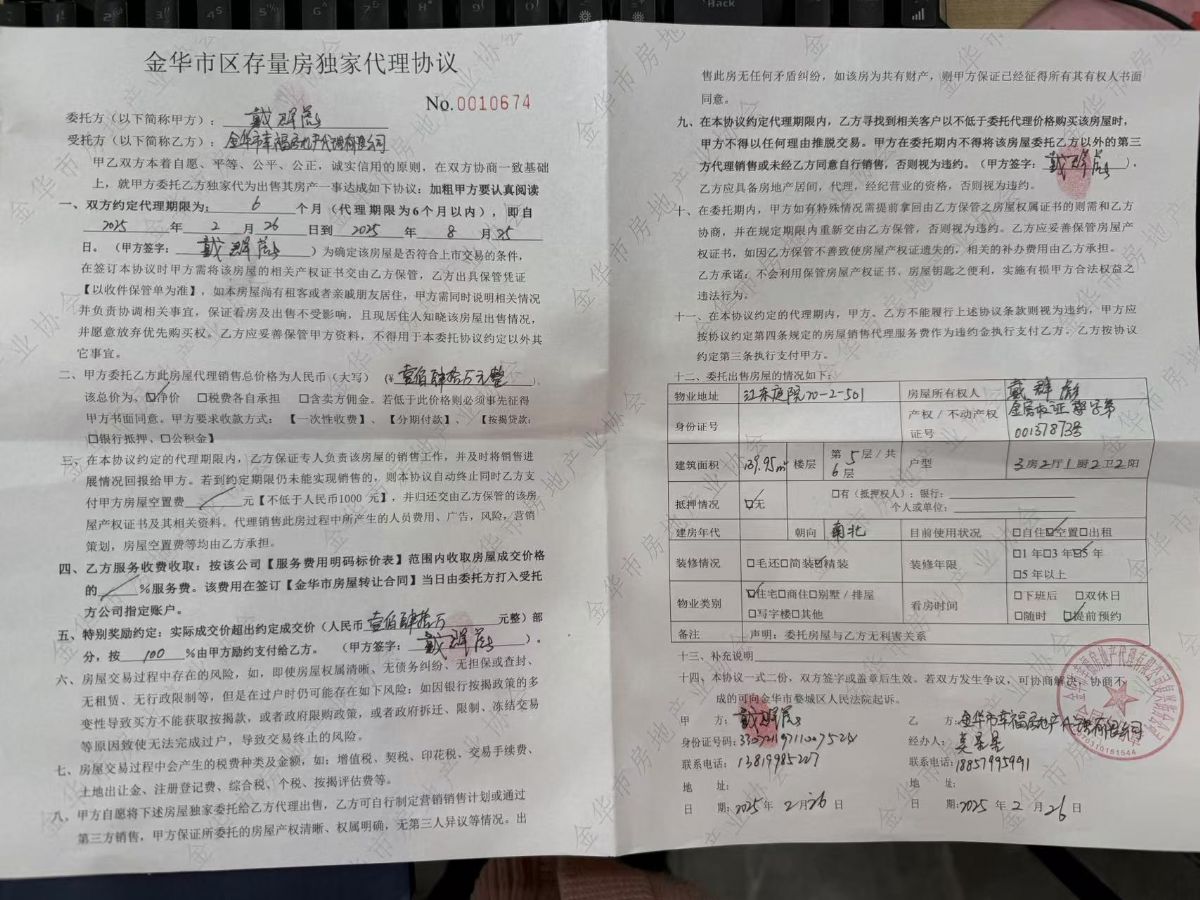 金华市区存量房独家代理协议
No.0010674
委托方（以下简称甲方）：戴
受托方（以下简称乙方）：金华市幸福房地产代理有限公司
甲乙双方本着自愿、平等、公平、公正，诚实信用的原则，在双方协商一致基础
上，就甲方委托乙方独家代为出售其房产一事达成如下协议：加粗甲方要认真阅读
一、双方约定代理期限为：6个月（代理期限为6个月以内），即自
2025年2月26日到2025年8月25
日。（甲方签字：戴）为确定该房屋是否符合上市交易的条件，
在签订本协议时甲方需将该房屋的相关产权证书交由乙方保管，乙方出具保管凭证
【以收件保管单为准】，如本房屋尚有租客或者亲戚朋友居住，甲方需同时说明相关情况
并负责协调相关事宜，保证看房及出售不受影响，且现居住人知晓该房屋出售情况，
并愿意放弃优先购买权。乙方应妥善保管甲方资料，不得用于本委托协议约定以外其
它事宜。
二、甲方委托乙方此房屋代理销售总价格为人民币（大写）（¥壹佰肆拾万元整），
该总价为、☑净价 □税费各自承担 □含卖方佣金。若低于此价格则必须事先征得
甲方书面同意。甲方要求收款方式：【一次性收费】、【分期付款】、【按揭贷款：
□银行抵押、□公积金】
三、在本协议约定的代理期限内，乙方保证专人负责该房屋的销售工作，并及时将销售进
展情况回报给甲方。若到约定期限仍未能实现销售的，则本协议自动终止同时乙方支
付甲方房屋空置费／元【不低于人民币1000 元】，并归还交由乙方保管的该房
屋产权证书及其相关资料。代理销售此房过程中所产生的人员费用、广告，风险，营销
策划，房屋空置费等均由乙方承担。
四、乙方服务收费收取：按该公司【服务费用明码标价表】范围内收取房屋成交价格
的／%服务费。该费用在签订【金华市房屋转让合同】当日由委托方打入受托
方公司指定账户。
五、特别奖励约定：实际成交价超出约定成交价（人民币壹佰肆拾万元整）部
分，按100%由甲方励约支付给乙方。（甲方签字：戴）。
六、房屋交易过程中存在的风险，如，即使房屋权属清晰、无债务纠纷、无担保或查封、
无租赁、无行政限制等，但是在过户时仍可能存在如下风险：如因银行按揭政策的多
变性导致买方不能获取按揭款，或者政府限购政策，或者政府拆迁、限制、冻结交易
等原因致使无法完成过户，导致交易终止的风险。
七、房屋交易过程中会产生的税费种类及金额，如：增值税、契税、印花税、交易手续费、
土地出让金、注册登记费、综合税、个税、按揭评估费等。
八、甲方自愿将下述房屋独家委托给乙方代理出售，乙方可自行制定营销销售计划或通过
第三方销售，甲方保证所委托的房屋产权清晰、权属明确，无第三人异议等情况。出
售此房无任何矛盾纠纷，如该房为共有财产，则甲方保证已经征得所有其有权人书面
同意。
九、在本协议约定代理期限内，乙方寻找到相关客户以不低于委托代理价格购买该房屋时，
甲方不得以任何理由推脱交易。甲方在委托期内不得将该房屋委托乙方以外的第三
方代理销售或未经乙方同意自行销售，否则视为违约。（甲方签字：戴）。
乙方应具备房地产居间，代理，经纪营业的资格，否则视为违约。
十、在委托期内，甲方如有特殊情况需提前拿回由乙方保管之房屋权属证书的则需和乙方
协商，并在规定期限内重新交由乙方保管，否则视为违约。乙方应妥善保管房屋产
权证书，如因乙方保管不善致使房屋产权证遗失的，相关的补办费用由乙方承担。
乙方承诺：不会利用保管房屋产权证书、房屋钥匙之便利，实施有损甲方合法权益之
违法行为。
十一、在本协议约定的代理期内，甲方、乙方不能履行上述协议条款则视为违约，甲方应
按协议约定第四条规定的房屋销售代理服务费作为违约金执行支付乙方。乙方按协议
约定第三条执行支付甲方。
十二、委托出售房屋的情况如下：
物业地址 江东庭院70-2-501 房屋所有权人 戴
身份证号 产权／不动产权证号 金房权证婺字第00137873号
建筑面积 139.95m² 楼层 第5层／共6层 户型 3房2厅1厨2卫2阳
抵押情况 ☑无 □有（抵押权人）：银行：
个人或单位：
建房年代 朝向 南北 目前使用状况 □自住☑空置□出租
装修情况 □毛还□简装☑精装 装修年限 □1年□3年☑5年
□5年以上
物业类别 ☑住宅□商住□别墅／排屋 看房时间 □下班后 □双休日
□写字楼□其他 □随时 ☑提前预约
备注 声明：委托房屋与乙方无利害关系
十三、补充说明
十四、本协议一式二份，双方签字或盖章后生效。若双方发生争议，可协商解决，协商不
成的可向金华市婺城区人民法院起诉。
甲 方：戴
乙 方：金华市幸福房地产代理有限公司
身份证号码：
经办人：莫星星
联系电话：13819985227
联系电话：18857995991
地 址：
地 址：
日 期：2025年2月26日
日 期：2025年2月26日